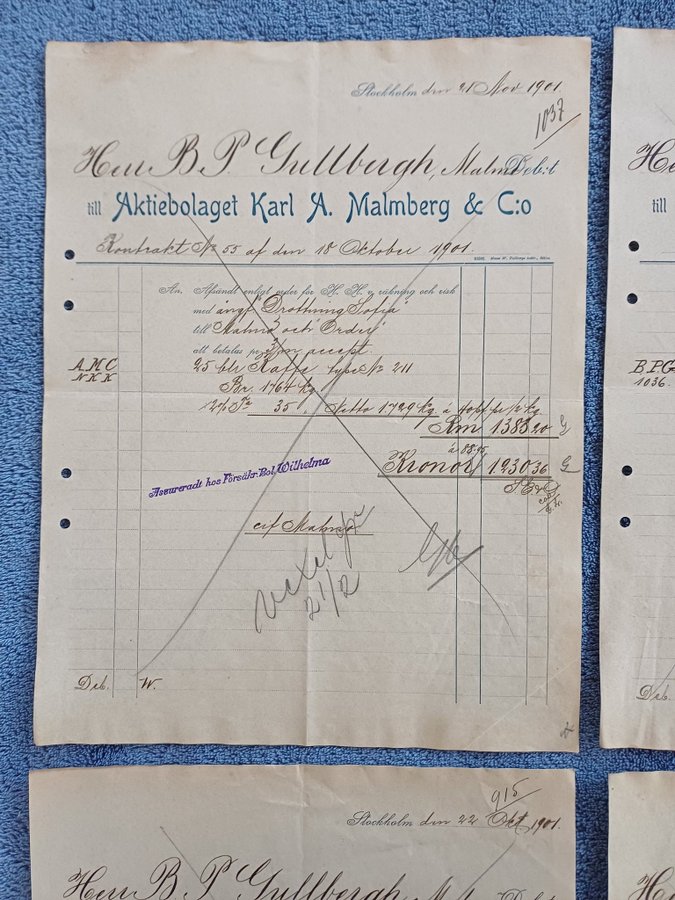 Stockholm den 21 Nov 1901.
1037
Herr B. P. Gullbergh, Malmö Debet
till Aktiebolaget Karl A. Malmberg & C:o
Kontrakt No 55 af den 18 Oktober 1901.
An. Afsändt enligt order för H. H. s räkning och risk
med ångf. Drottning Sofia
till Malmö och Order
att betalas pr 3/m accept.
A.M.C 25 blr Kaffe type No 211
N.K.K Br. 1764 kg
2% Ta 35 Netto 1729 kg à 40 pf pr ½ kg
Rm 1383 20
à 88.95
Kronor 1230 36
S.E.&O.
Assureradt hos Försäkr. Bol. Wilhelma
cif Malmö
Vexel
2 1/2
Deb. W.
till
B.P.G
1036.
Deb.
915
Stockholm den 22 Okt 1901.
Herr B. P. Gullbergh